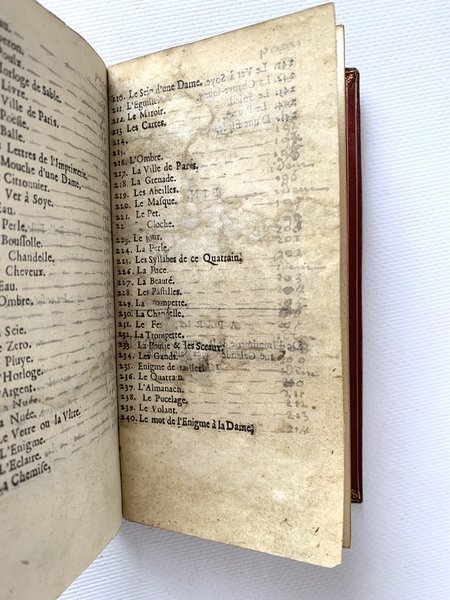 Poësie.
Horloge de Sable.
Livre.
Ville de Paris.
Balle.
Lettres de l'Imprimerie.
Mouche d'une Dame.
Citronnier.
Ver à Soye.
Eau.
Perle.
Boussolle.
Chandelle.
Cheveux.
Eau.
Ombre.
Scie.
Zero.
Pluye.
L'Horloge.
L'Argent.
La Nuée.
Le Verre ou la Vître.
L'Enigme.
L'Eclaire.
La Chemise,
210. Le Sein d'une Dame.
211. L'Eguille.
212. Le Miroir.
213. Les Cartes.
214.
215.
216. L'Ombre.
217. La Ville de Paris.
218. La Grenade.
219. Les Abeilles.
220. Le Masque.
221. Le Pet.
22 Cloche.
223. Le Jour.
224. La Perle.
225. Les Syllabes de ce Quatrain.
226. La Puce
227. La Beauté.
228. Les Pastilles.
229. La Trompette.
230. La Chandelle.
231. Le Fe
232. La Trompette.
233. La Poulie & les Sceaux.
234. Les Gands.
235. Enigme de raillerie.
236. Le Quatrain.
237. L'Almanach.
238. Le Pucelage.
239. Le Volant.
240. Le mot de l'Enigme à la Dame,